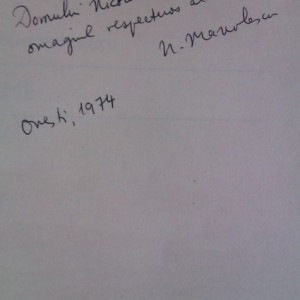 Domnului Nico
omagiul respectuos al
N. Manolescu
Onești, 1974